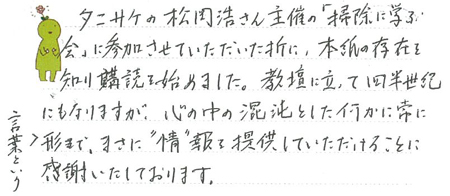 タニサケの松岡浩さん主催の「掃除に学ぶ
会」に参加させていただいた折に、本紙の存在を
知り購読を始めました。教壇に立って四半世紀
にもなりますが、心の中の混沌とした何かに常に
言葉という
形まで、まさに〝情〟報を提供していただけることに
感謝いたしております。